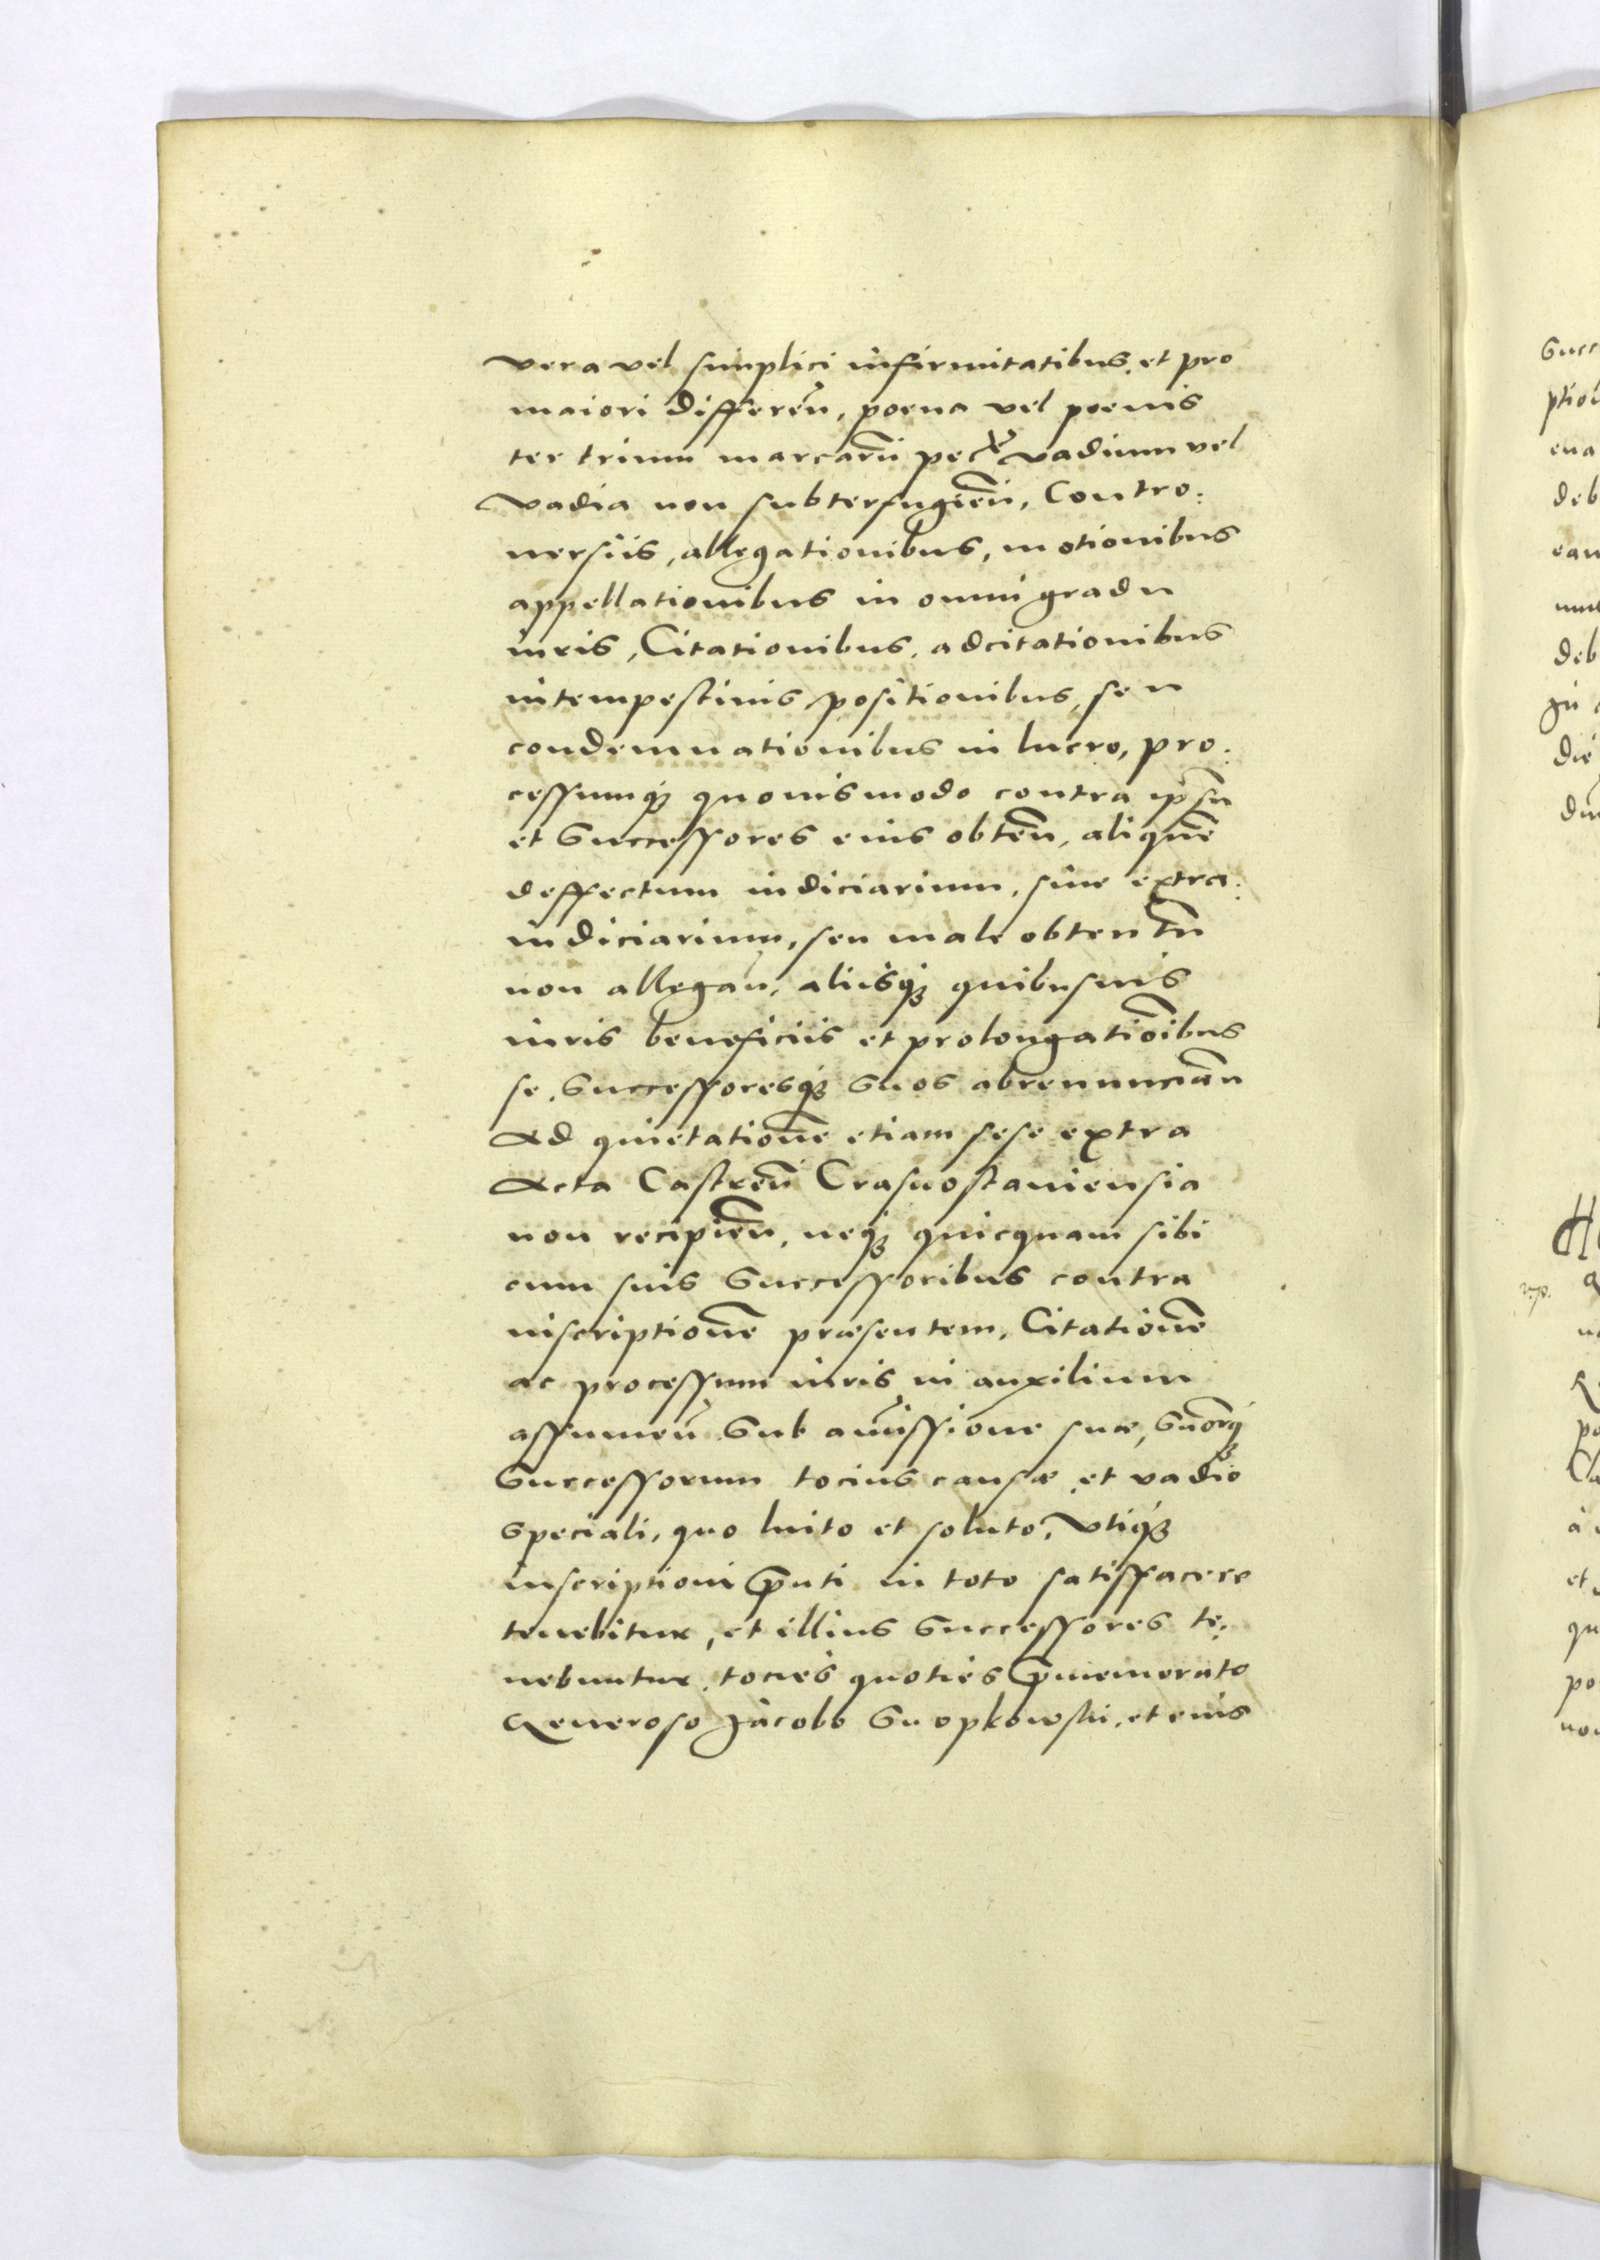 vera vel simplici infirmitatibus, et pro
maiori differen̄, poena vel poenis
ter trium marcarū pec: vadium vel
vadia non subterfugien̄, Contro:
uersiis, allegationibus, motionibus
appellationibus in omni gradu
iuris, Citationibus, adcitationibus
intempestiuis, positionibus, seu
condemnationibus in lucro, pro:
cessumq; quouismodo contra ipsū
et Successores eius obten̄, aliquē
deffectum iudiciarium, siue extra:
iudiciarium, seu male obtentū
non allegan̄, aliisq; quibusuis
iuris beneficiis et prolongatiōibus
se, Successoresq; Suos abrenuncian̄
Ad quietationē etiam sese extra
Acta Castren̄ Crasnostauiensia
non recipien̄, neq; quicquam sibi
cum suis Successoribus contra
inscriptionē praesentem, Citationē
ac processum iuris in auxilium
assumen̄ Sub amissione suae, Suorūq;
Successorum tocius causae, et vadio
Speciali, quo luito et soluto, Vtiq;
inscriptioni pn̄ti in toto satisfacere
tenebitur, et illius Successores te:
nebuntur, tocies quoties pn̄memorato
Generoso Jacobo Snopkowski, et eius
Succ
ena
deb
deb
et
qu
po
non